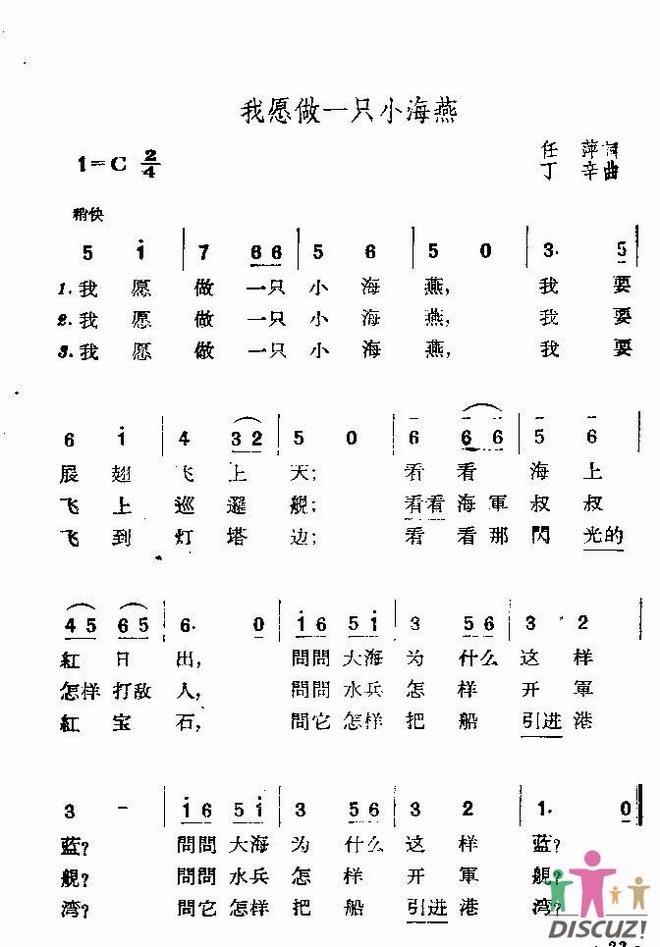 我愿做一只小海燕
1=C 2/4
任 萍 词
丁 辛 曲
稍快
5 1 | 7 6 6 | 5 6 | 5 0 | 3. 5
1.我 愿 做 一只 小 海 燕， 我 要
2.我 愿 做 一只 小 海 燕， 我 要
3.我 愿 做 一只 小 海 燕， 我 要
6 1 | 4 3 2 | 5 0 | 6 6 6 | 5 6
展 翅 飞 上 天； 看 看 海 上
飞 上 巡 邏 舰； 看看 海 軍 叔 叔
飞 到 灯 塔 边； 看 看 那 閃 光的
4 5 6 5 | 6. 0 | 1 6 5 1 | 3 5 6 | 3 2
紅 日 出， 問問 大海 为 什么 这 样
怎样 打敌 人， 問問 水兵 怎 样 开 軍
紅 宝 石， 問它 怎样 把 船 引进 港
3 - | 1 6 5 1 | 3 5 6 | 3 2 | 1. 0
蓝？ 問問 大海 为 什么 这 样 蓝？
舰？ 問問 水兵 怎 样 开 軍 舰？
湾？ 問它 怎样 把 船 引进 港 湾？
DISCUZ!